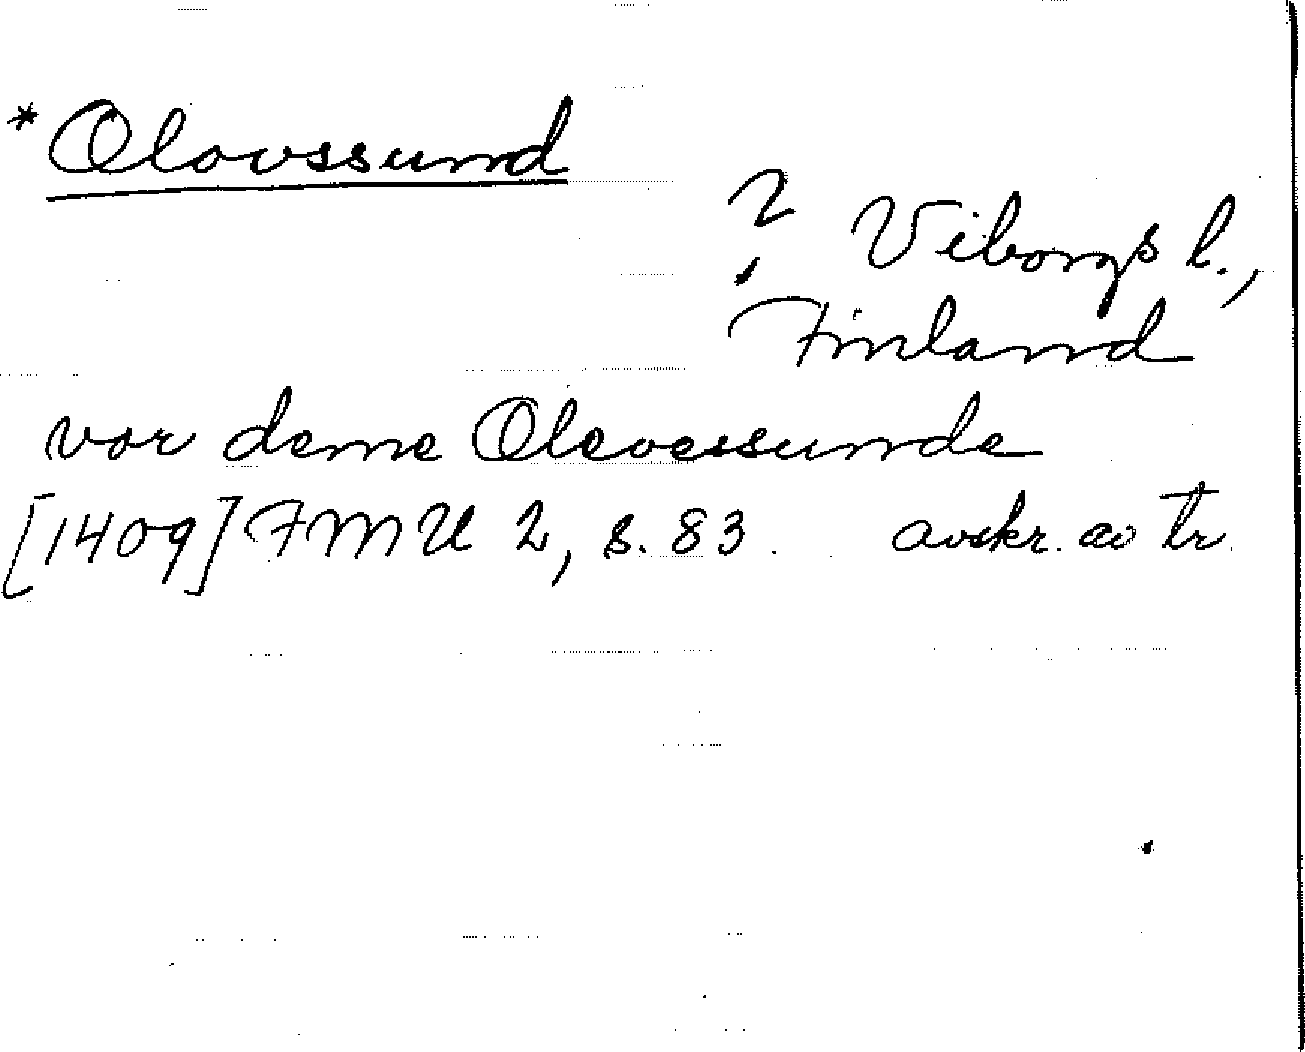 *Olovssund
? Viborgs l.,
Finland
vor deme Olevessunde
[1409] FMU 2, s. 83. avskr. av tr.